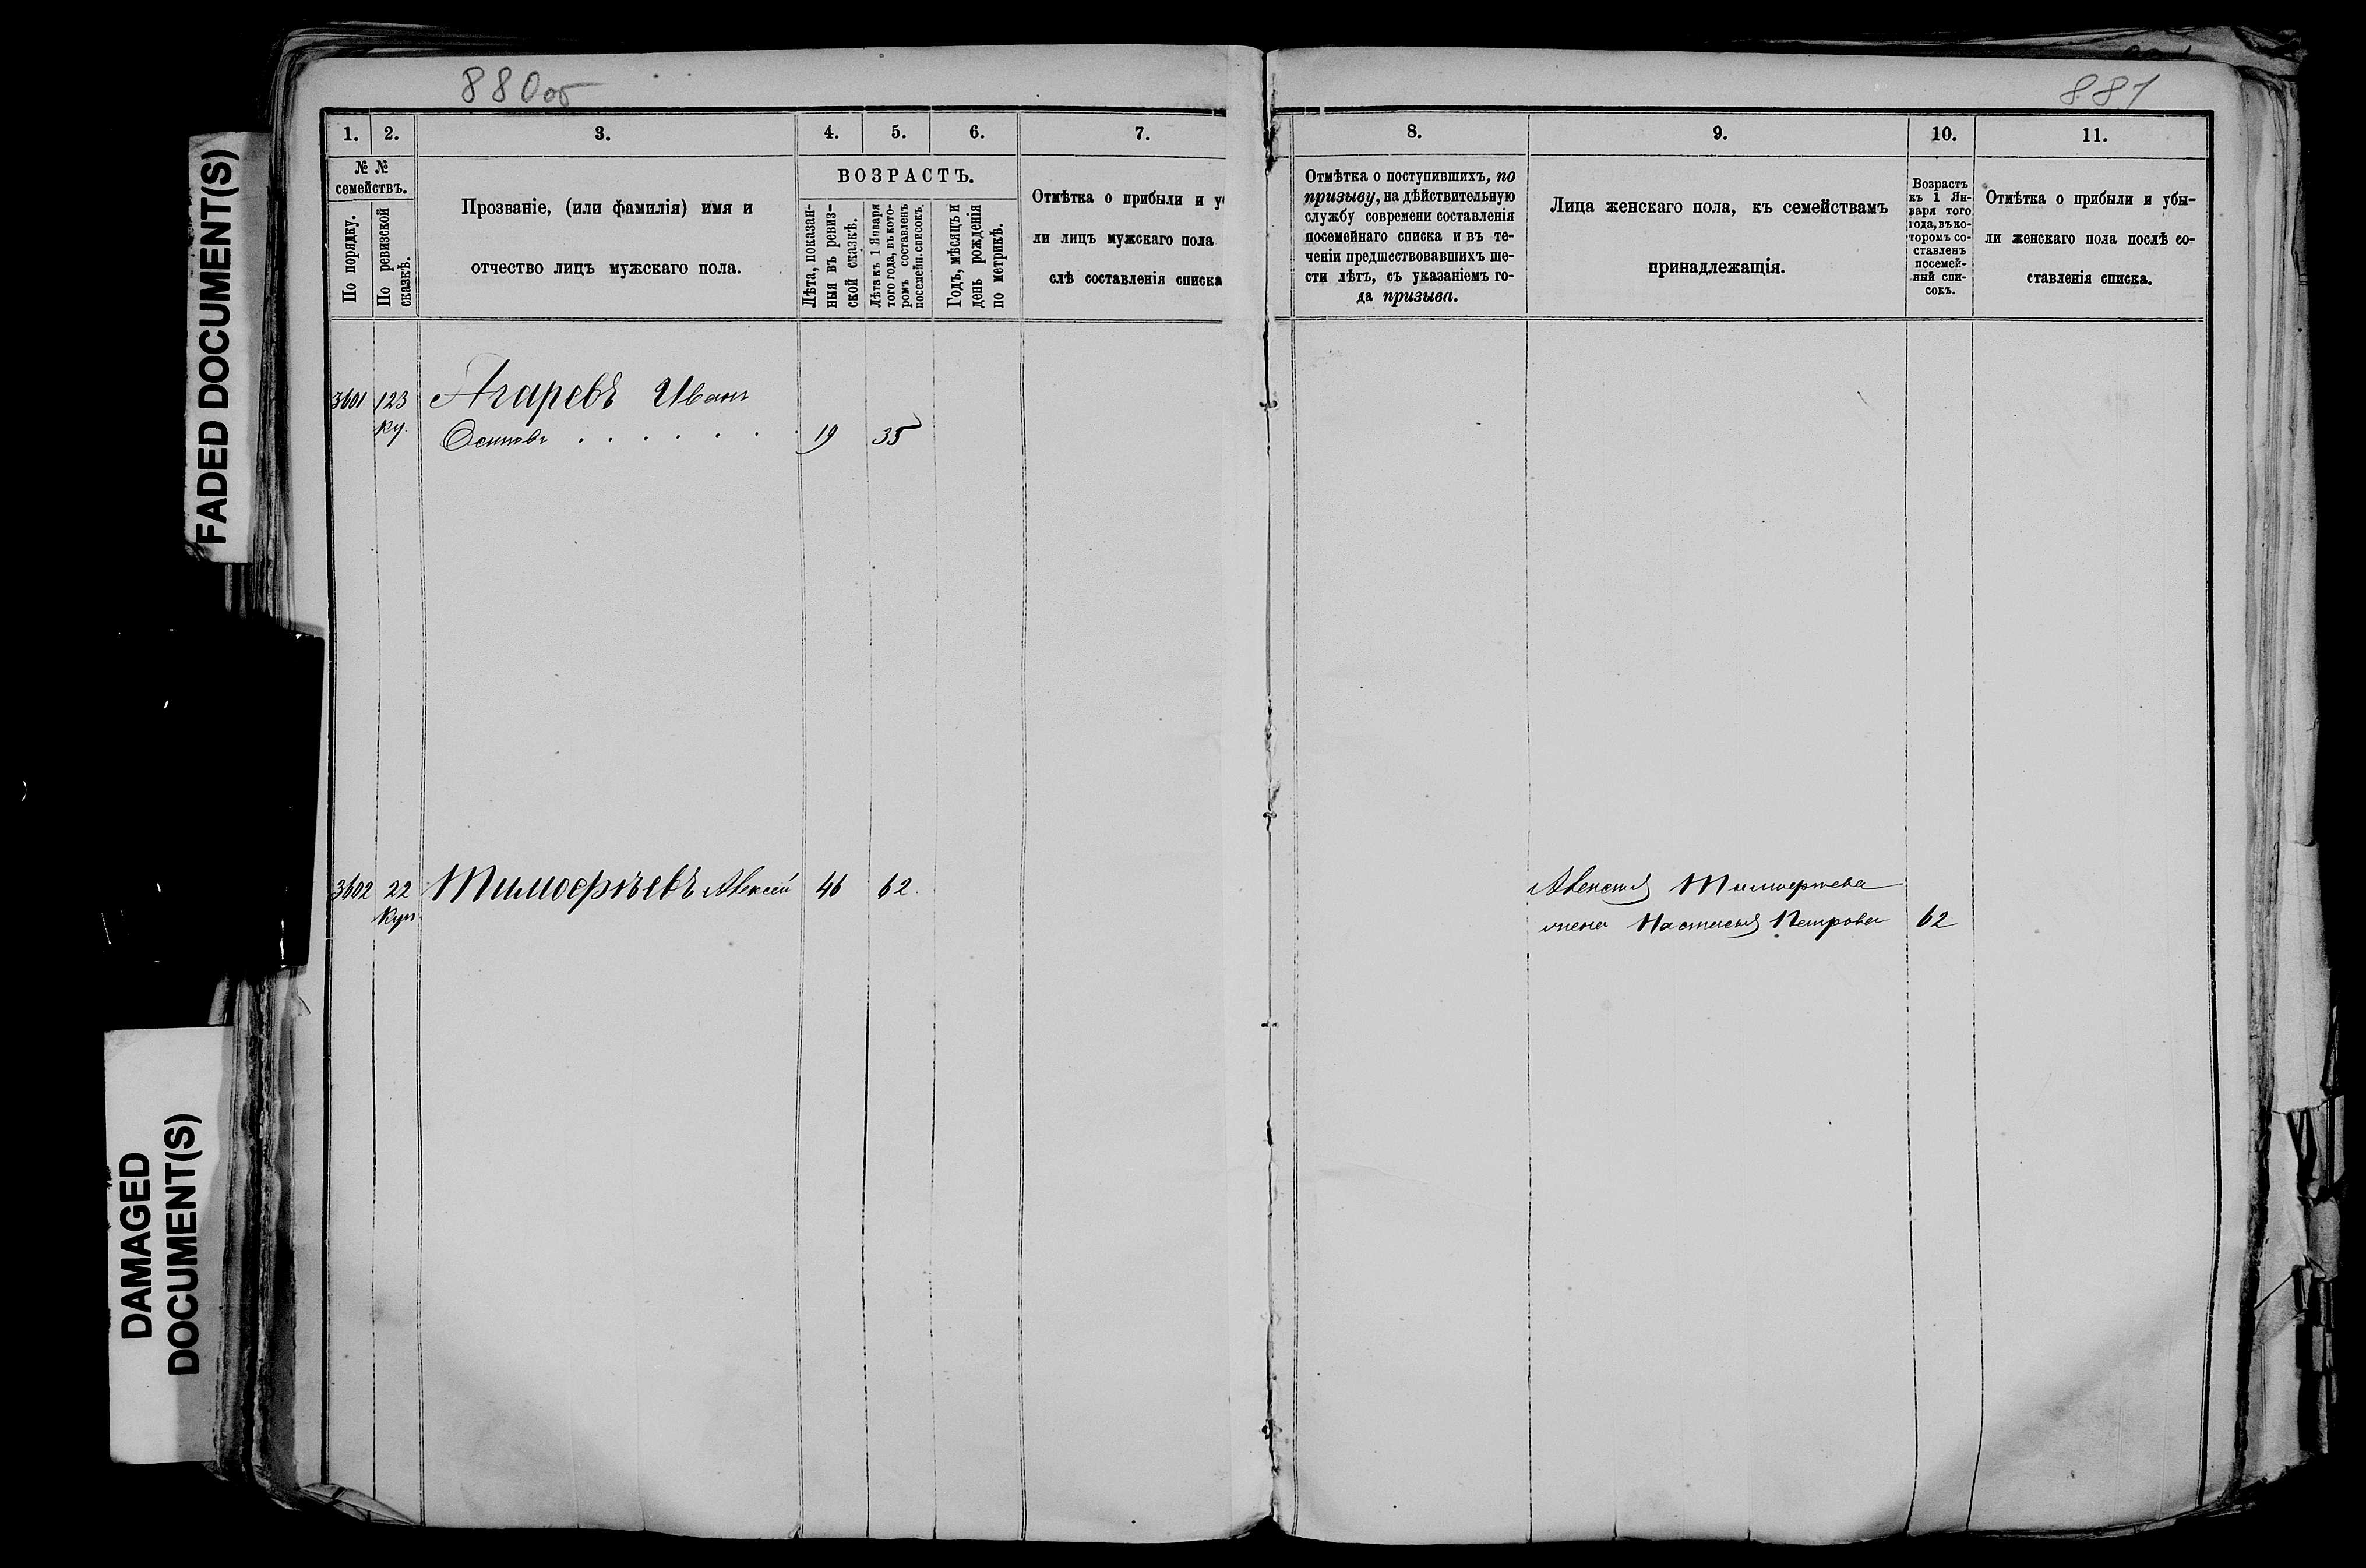 880об
881
1. 2. 3. 4. 5. 6. 7.
№ №
семействъ.
По порядку.
По ревизской
сказкѣ.
Прозваніе, (или фамилія) имя и
отчество лицъ мужскаго пола.
ВОЗРАСТЪ.
Лѣта, показан-
ныя въ ревиз-
ской сказкѣ.
Лѣта къ 1 Января
того года, въ кото-
ромъ составленъ
посемейн. списокъ.
Годъ, мѣсяцъ и
день рожденія
по метрикѣ.
Отмѣтка о прибыли и у
ли лицъ мужскаго пола
слѣ составленія списка
8. 9. 10. 11.
Отмѣтка о поступившихъ, по
призыву, на дѣйствительную
службу современи составленія
посемейнаго списка и въ те-
ченіи предшествовавшихъ ше-
сти лѣтъ, съ указаніемъ го-
да призыва.
Лица женскаго пола, къ семействамъ
принадлежащія.
Возрастъ
къ 1 Ян-
варя того
года, въ ко-
торомъ со-
ставленъ
посемей-
ный спи-
сокъ.
Отмѣтка о прибыли и убы-
ли женскаго пола послѣ со-
ставленія списка.
3601 123 Агаревъ Иванъ
ку. Осиповъ . . . . . . 19 35
3602 22 Тимофѣевъ Алексѣй 46 62.
куп
Алексѣя Тимофѣева
жена Настасья Петрова 62
FADED DOCUMENT(S)
DAMAGED
DOCUMENT(S)